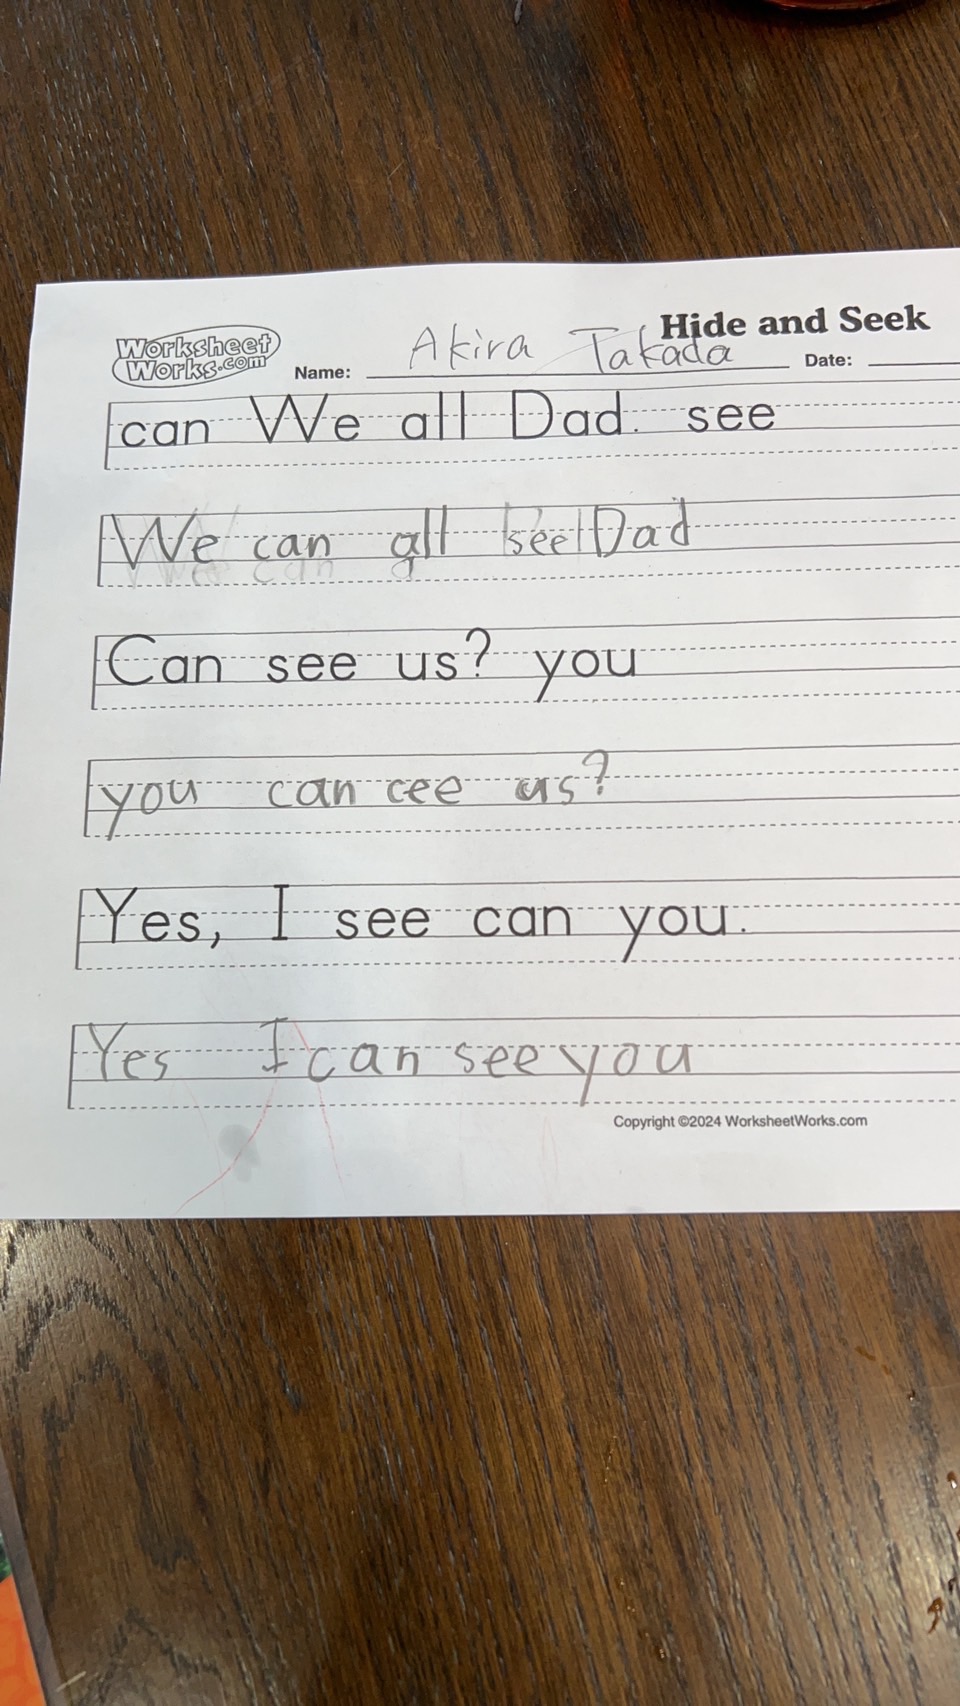 Hide and Seek
Worksheet
Works.com
Name: Akira Takada Date:
can We all Dad. see
We can all see Dad
Can see us? you
you can cee us?
Yes, I see can you.
Yes I can see you
Copyright ©2024 WorksheetWorks.com